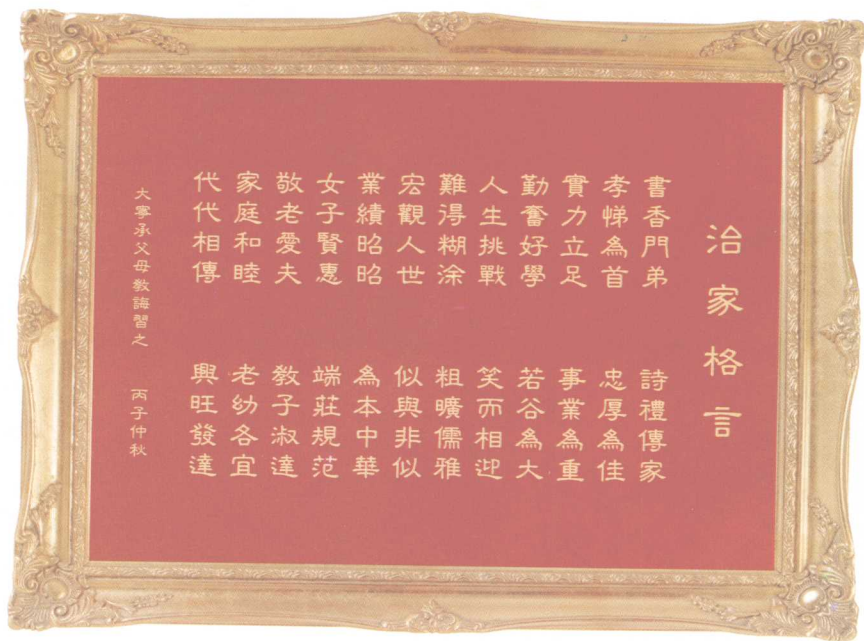 治家格言
書香門弟 詩禮傳家
孝悌為首 忠厚為佳
實力立足 事業為重
勤奮好學 若谷為大
人生挑戰 笑而相迎
難得糊涂 粗曠儒雅
宏觀人世 似與非似
業績昭昭 為本中華
女子賢惠 端莊規范
敬老愛夫 教子淑達
家庭和睦 老幼各宜
代代相傳 興旺發達
大寧承父母教誨習之 丙子仲秋